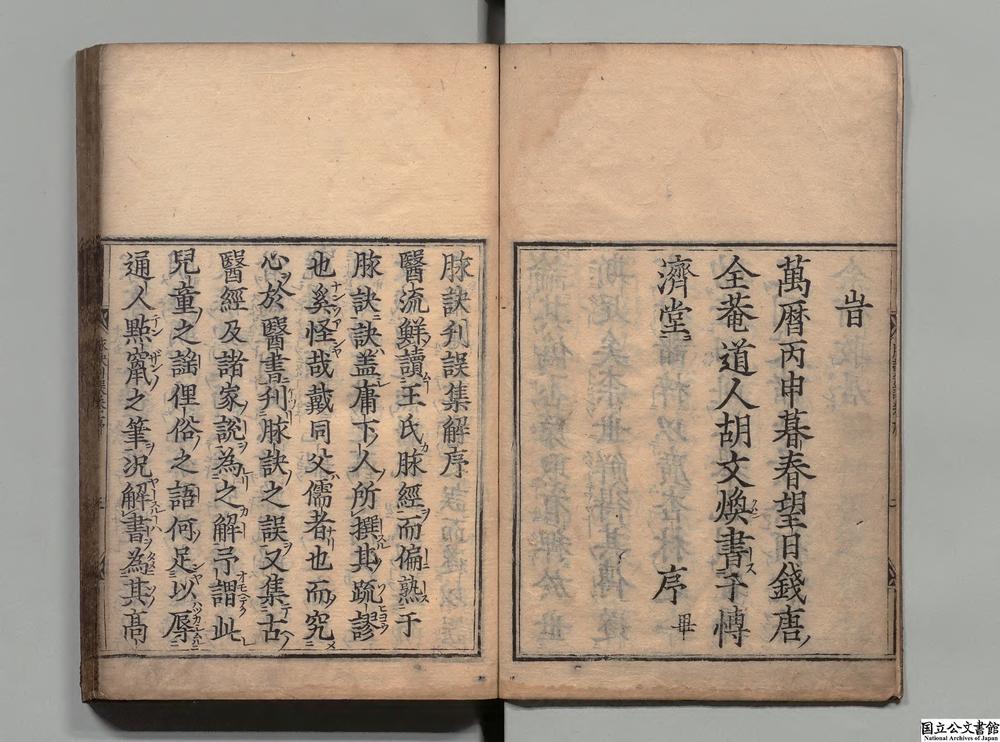 旹
萬曆丙申暮春望日錢唐
全菴道人胡文煥書于愽
濟堂 序 畢
脉訣刋誤集解序
醫流鮮讀王氏脉經而偏熟于
脉訣訣盖庸下人所撰其疏謬
也奚怪哉戴同父儒者也而究
心於醫書刋脉訣之誤又集古
醫經及諸家說為之解予謂此
兒童之謡俚俗之語何足以辱
通人點竄之筆況解書為其髙
国立公文書館
National Archives of Japan